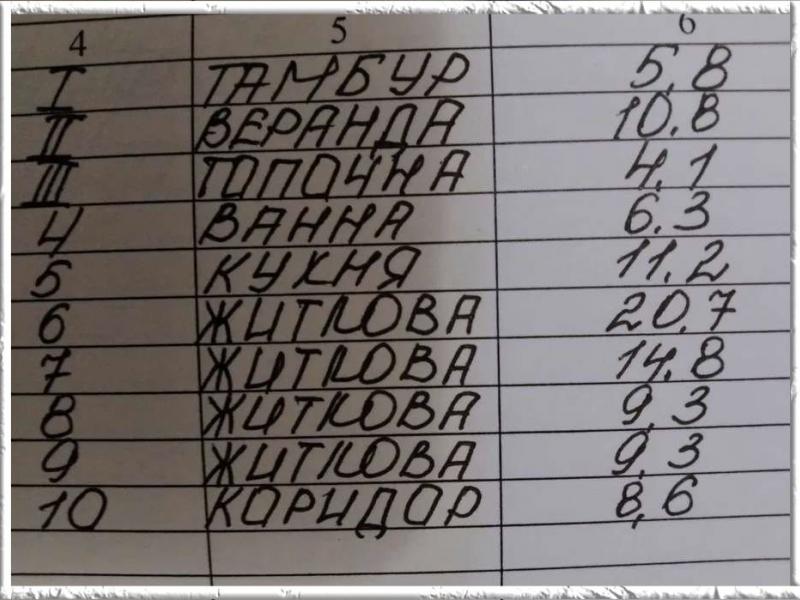 4 5 6
I ТАМБУР 5,8
II ВЕРАНДА 10.8
III ТОПОЧНА 4,1
4 ВАННА 6.3
5 КУХНЯ 11,2
6 ЖИТЛОВА 20,7
7 ЖИТЛОВА 14,8
8 ЖИТЛОВА 9,3
9 ЖИТЛОВА 9,3
10 КОРИДОР 8,6